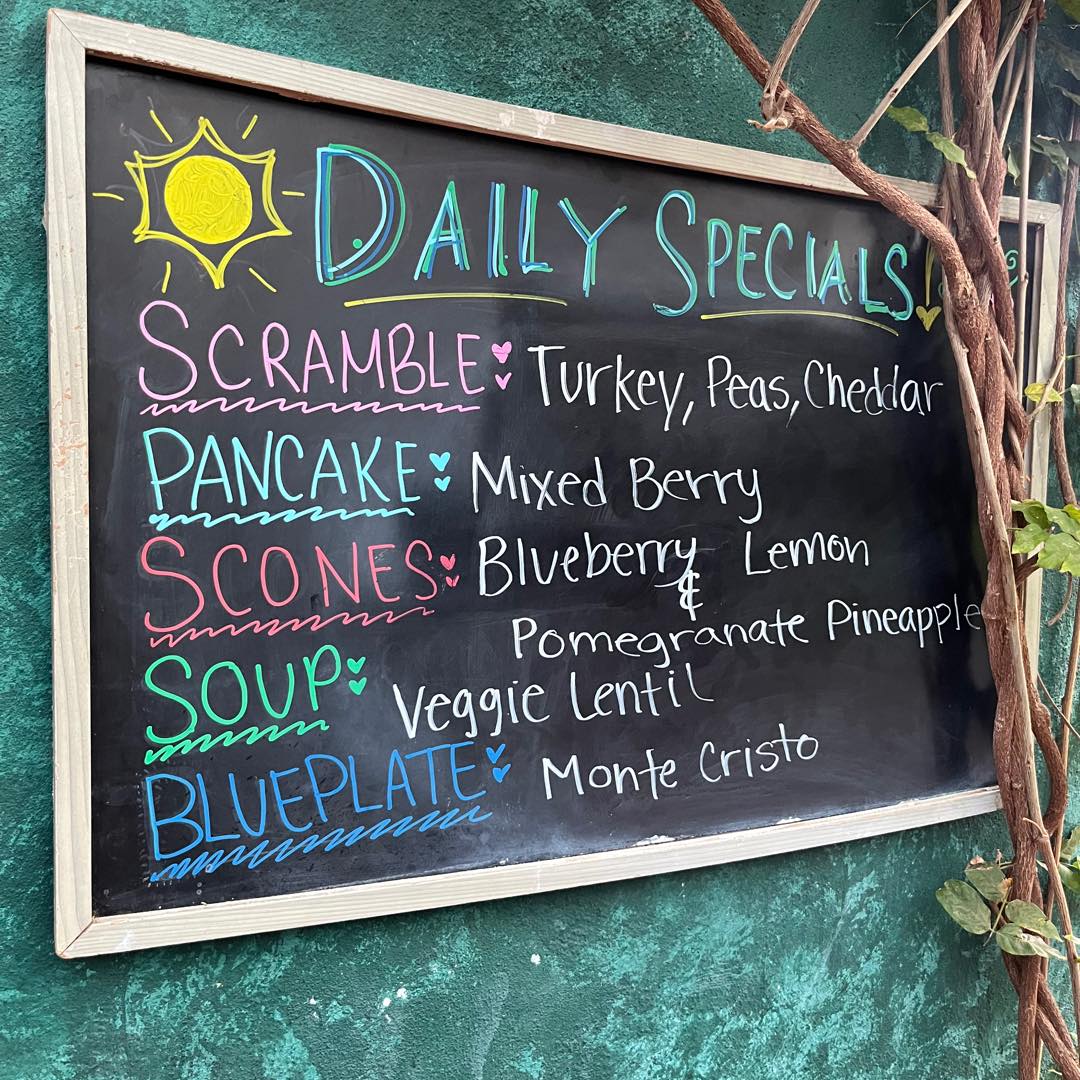 DAILY SPECIALS!
SCRAMBLE: Turkey, Peas, Cheddar
PANCAKE: Mixed Berry
SCONES: Blueberry Lemon
&
Pomegranate Pineapple
SOUP: Veggie Lentil
BLUEPLATE: Monte Cristo